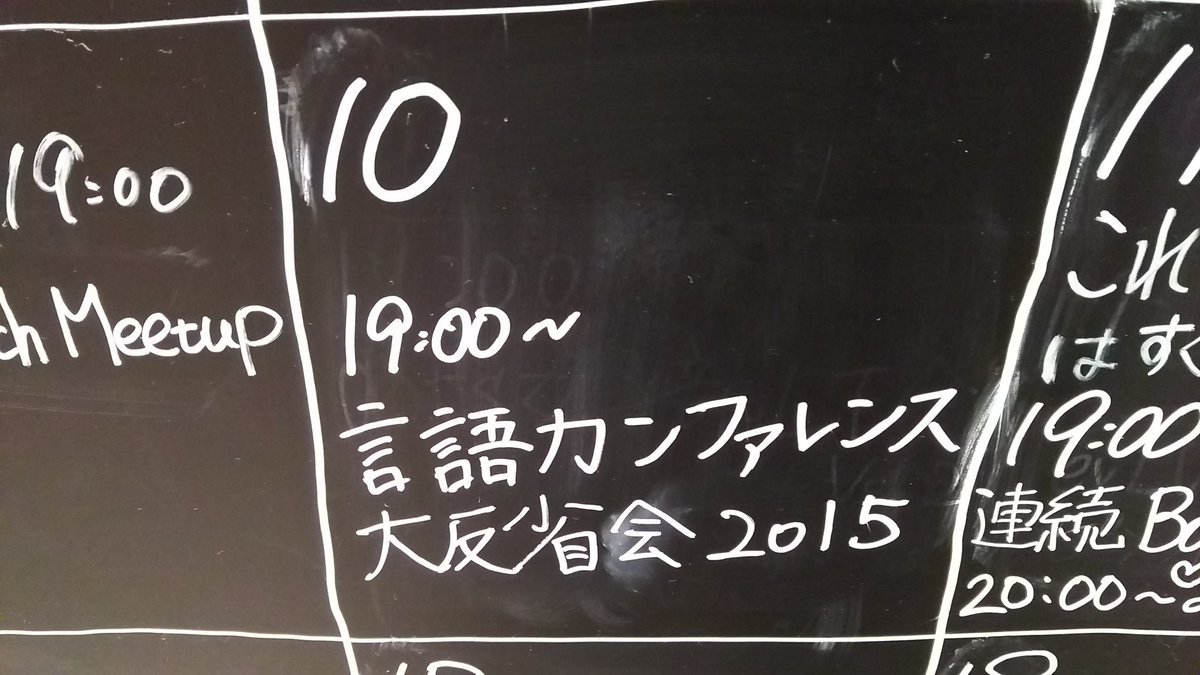 19:00
Meetup
10
19:00~
言語カンファレンス
大反省会2015
11
これ
はすぐ
19:00
連続
20:00~